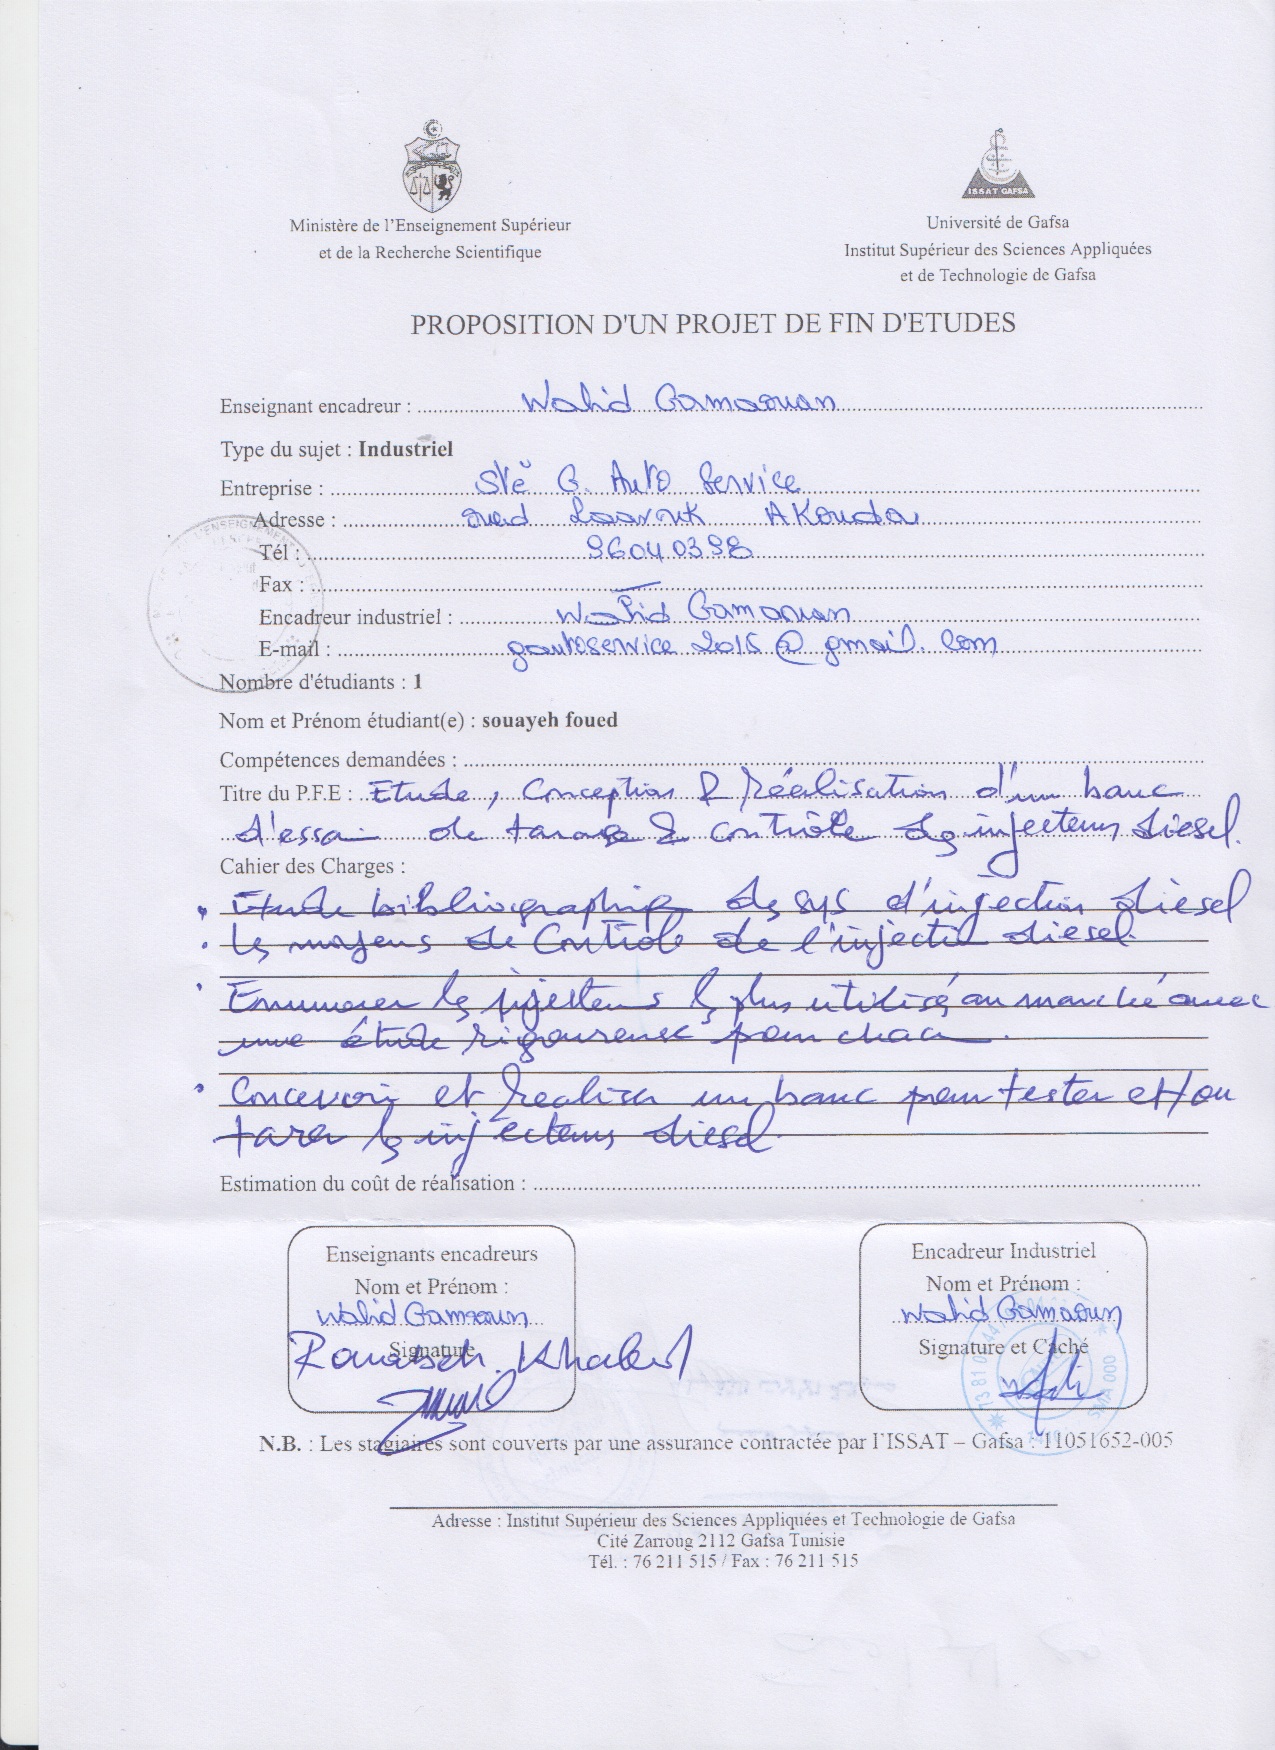 Ministère de l'Enseignement Supérieur
et de la Recherche Scientifique
ISSAT GAFSA
Université de Gafsa
Institut Supérieur des Sciences Appliquées
et de Technologie de Gafsa
PROPOSITION D'UN PROJET DE FIN D'ETUDES
Enseignant encadreur : Walid Gamaoun
Type du sujet : Industriel
Entreprise : Sté G. Auto Service
Adresse : oued Laarouk AKouda
Tél : 96040398
Fax :
Encadreur industriel : Walid Gamaoun
E-mail : gautoservice2016@gmail.com
Nombre d'étudiants : 1
Nom et Prénom étudiant(e) : souayeh foued
Compétences demandées :
Titre du P.F.E : Etude, Conception & réalisation d'un banc
d'essai de tarage & contrôle des injecteurs diesel.
Cahier des Charges :
• Etude bibliographique des sys d'injection diesel
• les moyens de Contrôle de l'injection diesel.
• Enumerer les injecteurs les plus utilisés au marché avec
une étude rigoureuse pour chacun.
• Concevoir et realiser un banc pour tester et/ou
tarer les injecteurs diesel
Estimation du coût de réalisation :
Enseignants encadreurs
Nom et Prénom :
Walid Gamaoun
Signature
Khaled
Encadreur Industriel
Nom et Prénom :
Walid Gamaoun
Signature et Caché
N.B. : Les stagiaires sont couverts par une assurance contractée par l'ISSAT – Gafsa : 11051652-005
Adresse : Institut Supérieur des Sciences Appliquées et Technologie de Gafsa
Cité Zarroug 2112 Gafsa Tunisie
Tél. : 76 211 515 / Fax : 76 211 515